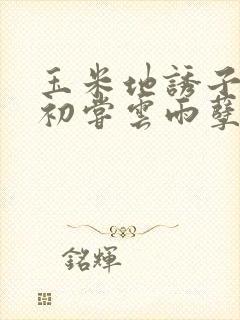 玉米地誘子
初嘗雲雨孽
銘輝